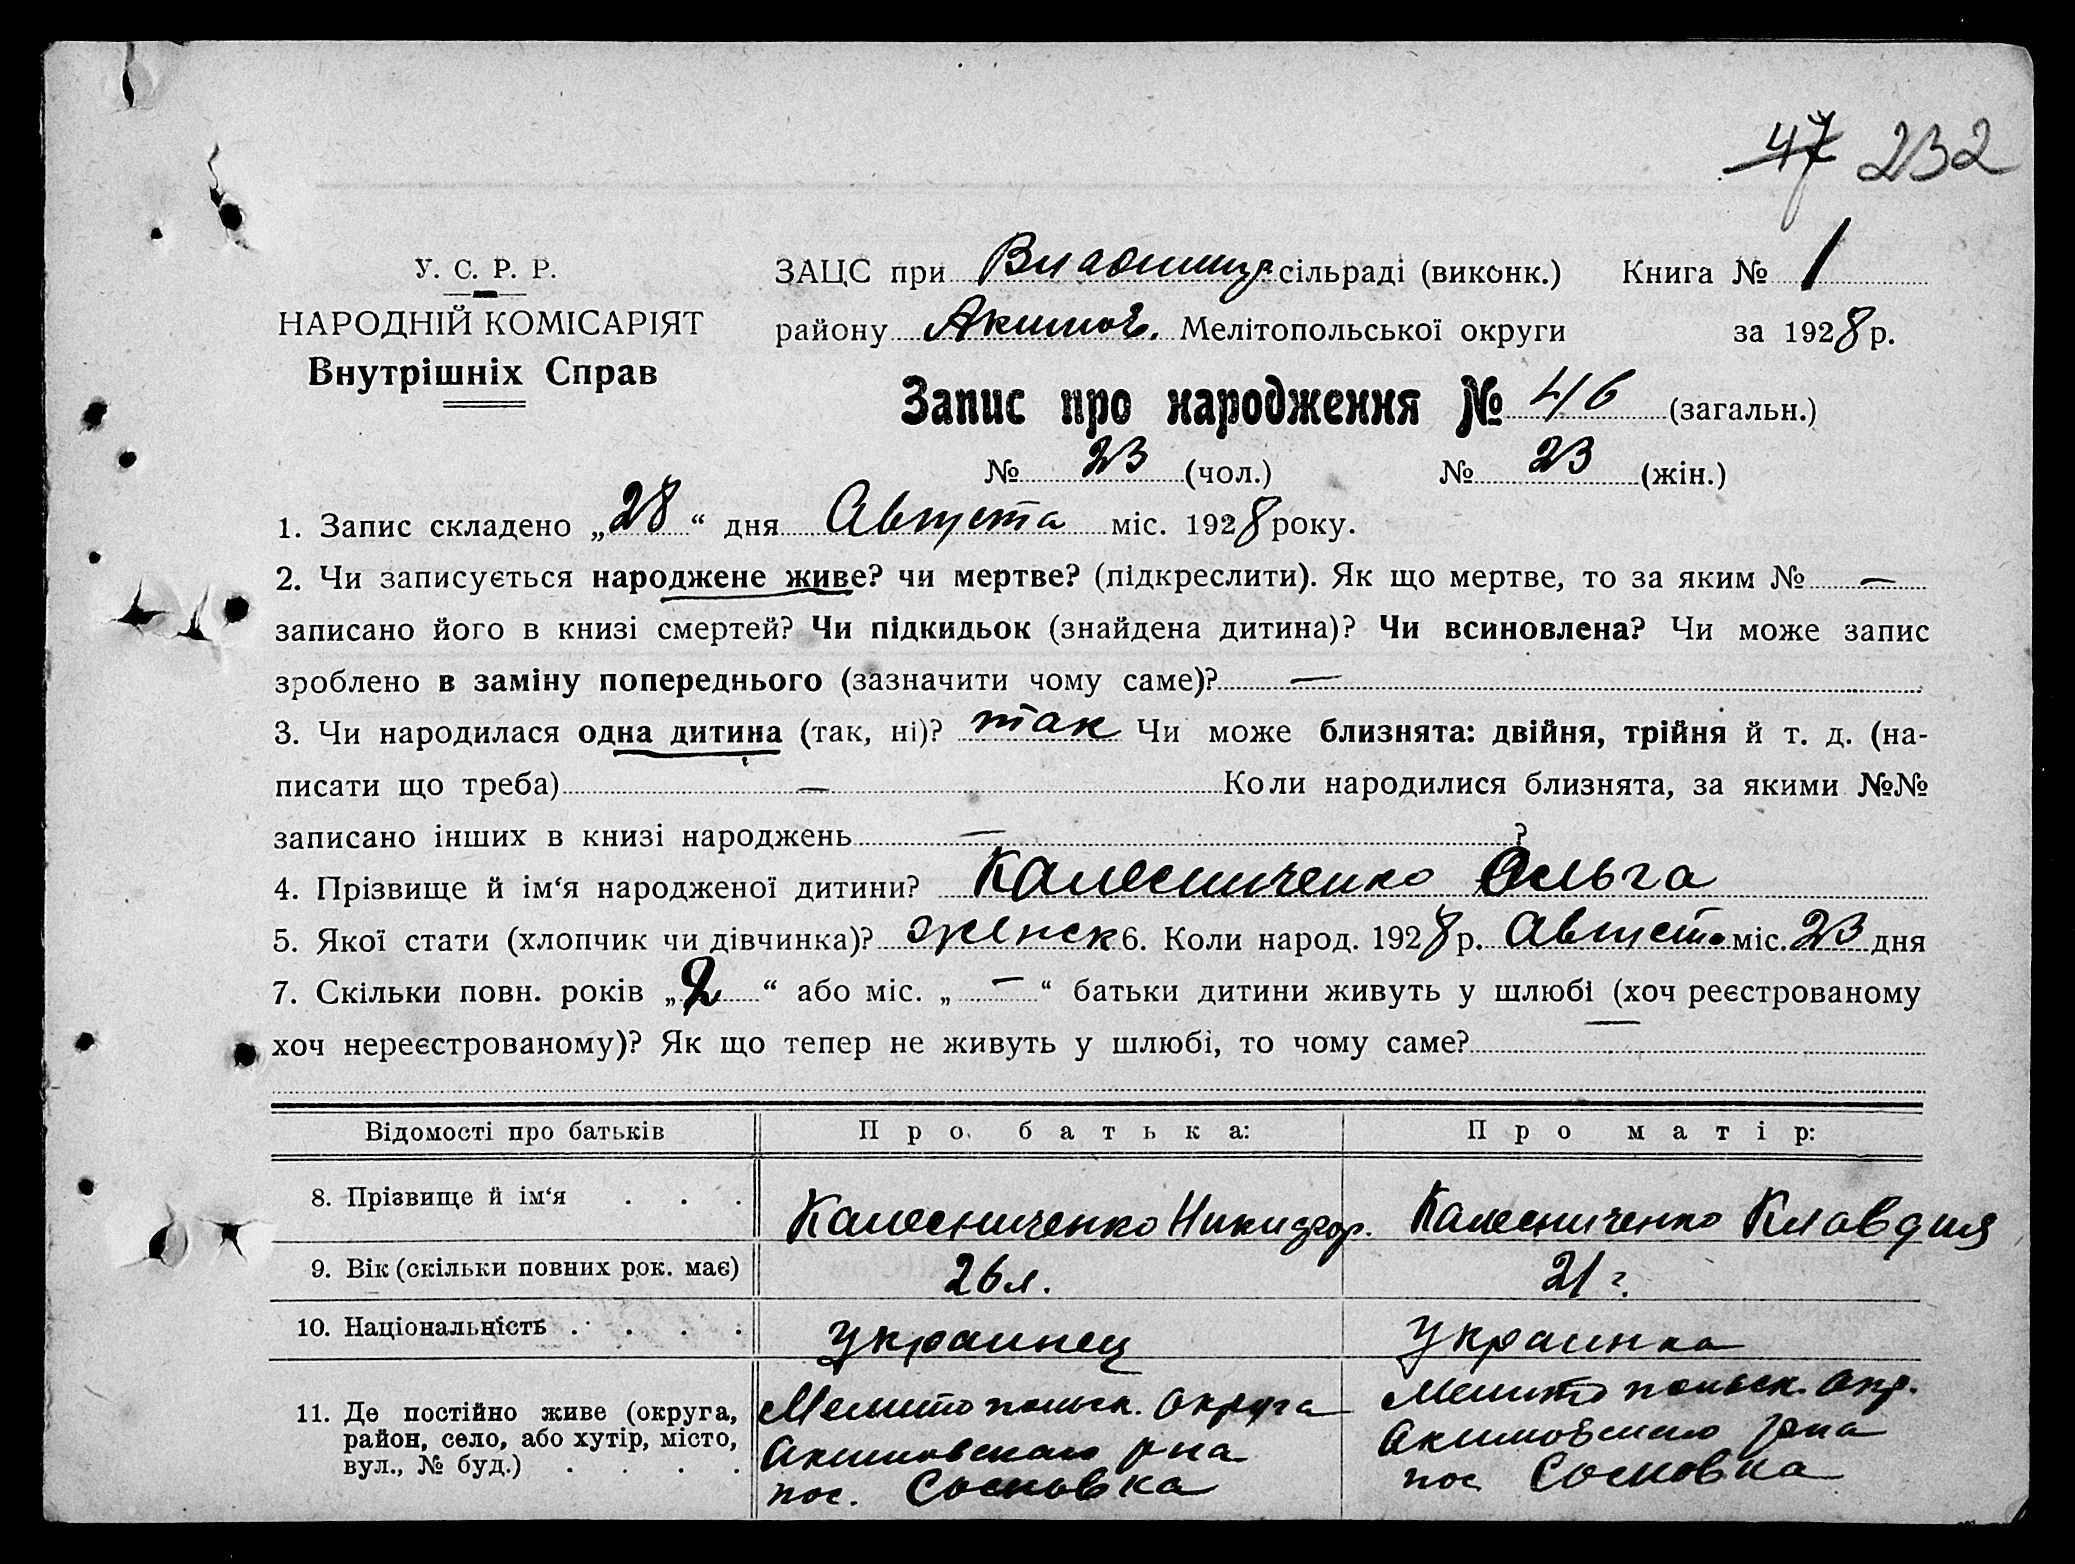 47 232
У. С. Р. Р.
НАРОДНІЙ КОМІСАРІЯТ
Внутрішніх Справ
ЗАЦС при Владимир. сільраді (виконк.) Книга № 1
району Акимов. Мелітопольської округи за 1928 р.
Запис про народження № 46 (загальн.)
№ 23 (чол.) № 23 (жін.)
1. Запис складено „28“ дня Августа міс. 1928 року.
2. Чи записується народжене живе? чи мертве? (підкреслити). Як що мертве, то за яким № —
записано його в книзі смертей? Чи підкидьок (знайдена дитина)? Чи всиновлена? Чи може запис
зроблено в заміну попереднього (зазначити чому саме)? —
3. Чи народилася одна дитина (так, ні)? так Чи може близнята: двійня, трійня й т. д. (на-
писати що треба) — Коли народилися близнята, за якими №№
записано інших в книзі народжень — ?
4. Прізвище й ім‘я народженої дитини? Калесниченко Ольга
5. Якої стати (хлопчик чи дівчинка)? женск 6. Коли народ. 1928 р. Августа міс. 23 дня
7. Скільки повн. років „2“ або міс. „—“ батьки дитини живуть у шлюбі (хоч реєстрованому
хоч нереєстрованому)? Як що тепер не живуть у шлюбі, то чому саме? —
Відомості про батьків Про батька: Про матір:
8. Прізвище й ім‘я . . . Калесниченко Никифор. Калесниченко Клавдия
9. Вік (скільки повних рок. має) 26 л. 21 г.
10. Національність . . . . Украинец Украинка
11. Де постійно живе (округа, Мелитопольск. Округа Мелитопольск. Окр.
район, село, або хутір, місто, Акимовского р на Акимовского р на
вул., № буд.) . . . . пос. Сосновка пос Сосновка